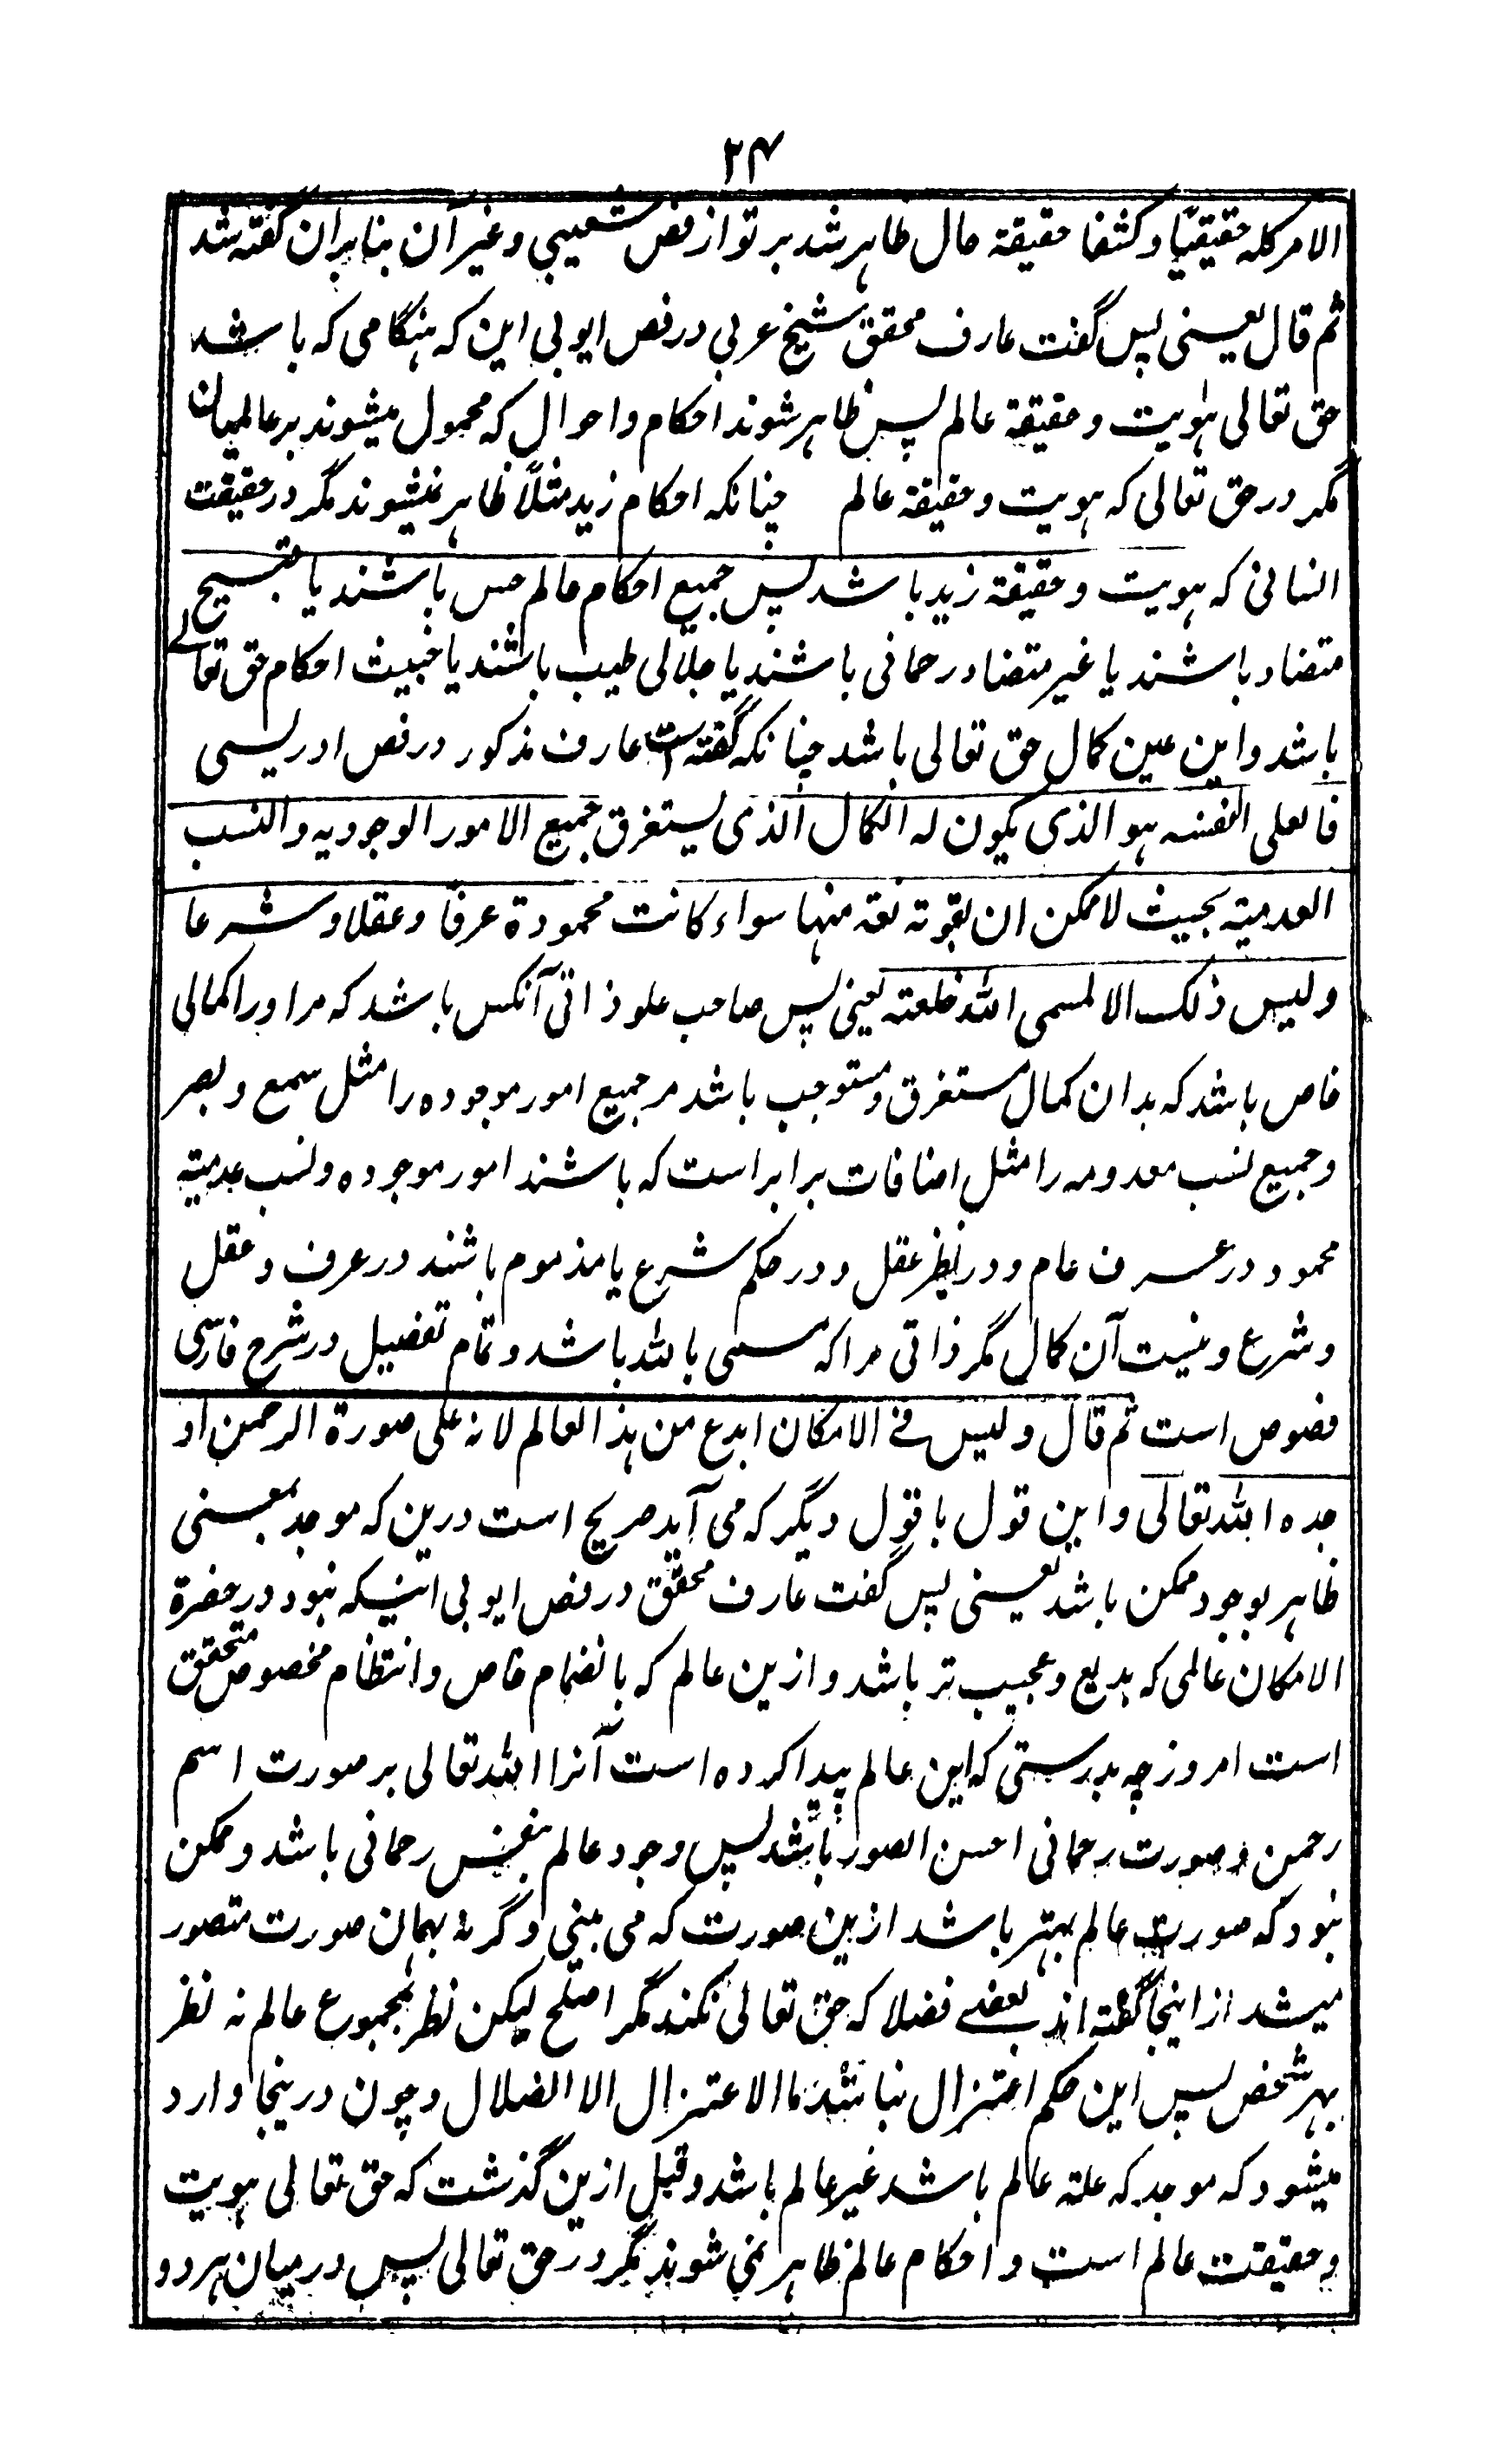 ۲۴
الامر کله حقیقیًا و کشفا حقیقة حال ظاہر شد بر تو از فص شعیبی و غیر آن بنا بران گفته شد
ثم قال یعنی پس گفت عارف محقق شیخ عربی در فص ایوبی این که ہنگامی که باشد
حق تعالی ہویت و حقیقة عالم پس ظاہر شوند احکام و احوال که محمول میشوند بر عالمیان
مگر در حق تعالی که ہویت و حقیقة عالم چنانکه احکام زید مثلاً ظاہر نمیشوند مگر در حقیقت
انسانی که ہویت و حقیقة زید باشد پس جمیع احکام عالم حسن باشند یا قبیح
متضاد باشند یا غیر متضاد رحمانی باشند یا جلالی طیب باشند یا خبیث احکام حق تعالے
باشد و این عین کمال حق تعالی باشد چنانکه گفته است عارف مذکور در فص ادریسی
فالعلی لنفسه ہو الذی یکون له الکمال الذی یستغرق جمیع الامور الوجودیه و النسب
العدمیة بحیث لا یمکن ان یفوته نعته منہا سواء کانت محمودة عرفا و عقلا و شرعا
و لیس ذلک الا لمسمی الله خلعته یعنی پس صاحب علو ذاتی آنکس باشد که مر او را کمالی
خاص باشد که بدان کمال مستغرق و مستوجب باشد مر جمیع امور موجوده را مثل سمع و بصر
و جمیع نسب معدومه را مثل اضافات برابر است که باشند امور موجوده و نسب عدمیة
محمود در عرف عام و در نظر عقل و در حکم شرع یا مذموم باشند در عرف و عقل
و شرع و نیست آن کمال مگر ذاتی مر اکه مسمی بالله باشد و تمام تفصیل در شرح فارسی
فصوص است ثم قال و لیس فے الامکان ابدع من ہذا العالم لانه علی صورة الرحمن او
جده الله تعالی و این قول با قول دیگر که می آید صریح است درین که موجد بمعنی
ظاہر بوجود ممکن باشد یعنی پس گفت عارف محقق در فص ایوبی اینکه نبود در حضرة
الامکان عالمی که بدیع و عجیب تر باشد و ازین عالم که بانضمام خاص و انتظام مخصوص متحقق
است امروز چه بدرستی که این عالم پیدا کرده است آنرا الله تعالی بر صورت اسم
رحمن و صورت رحمانی احسن الصور باشد پس وجود عالم بنفس رحمانی باشد و ممکن
نبود که صورت عالم بہتر باشد ازین صورت که می بینی و گرنه بہمان صورت متصور
میشد از اینجا گفته اند بعضے فضلا که حق تعالی نکند مگر اصلح لیکن نظر بمجموع عالم نه نظر
بہر شخص پس این حکم اعتزال نباشد ما الاعتزال الا الضلال و چون درینجا وارد
میشود که موجد که علة عالم باشد غیر عالم باشد و قبل ازین گذشت که حق تعالی ہویت
و حقیقت عالم است و احکام عالم ظاہر نمی شوند مگر در حق تعالی پس درمیان ہر دو